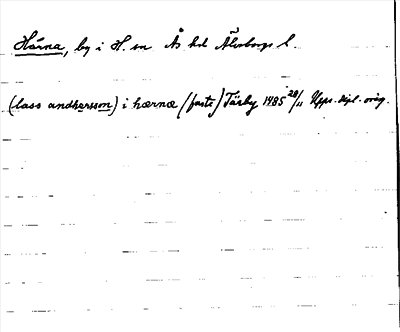 Härna, by i H. sn Ås hd Älvsborgs l.
(lass andhersson) i hærnæ (faste) Täsby 1485 28/11 Upps. dipl. orig.